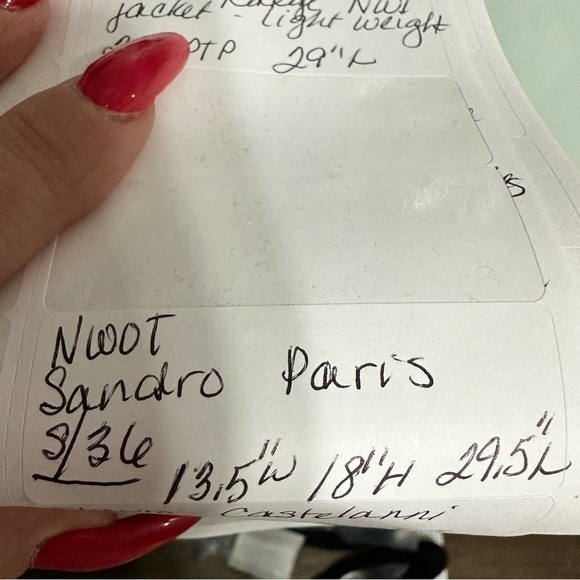 jacket Range NWT
- light weight
PTP 29" L
NWOT
Sandro Paris
S/36
13.5" W 18" H 29.5" L
Castelanni